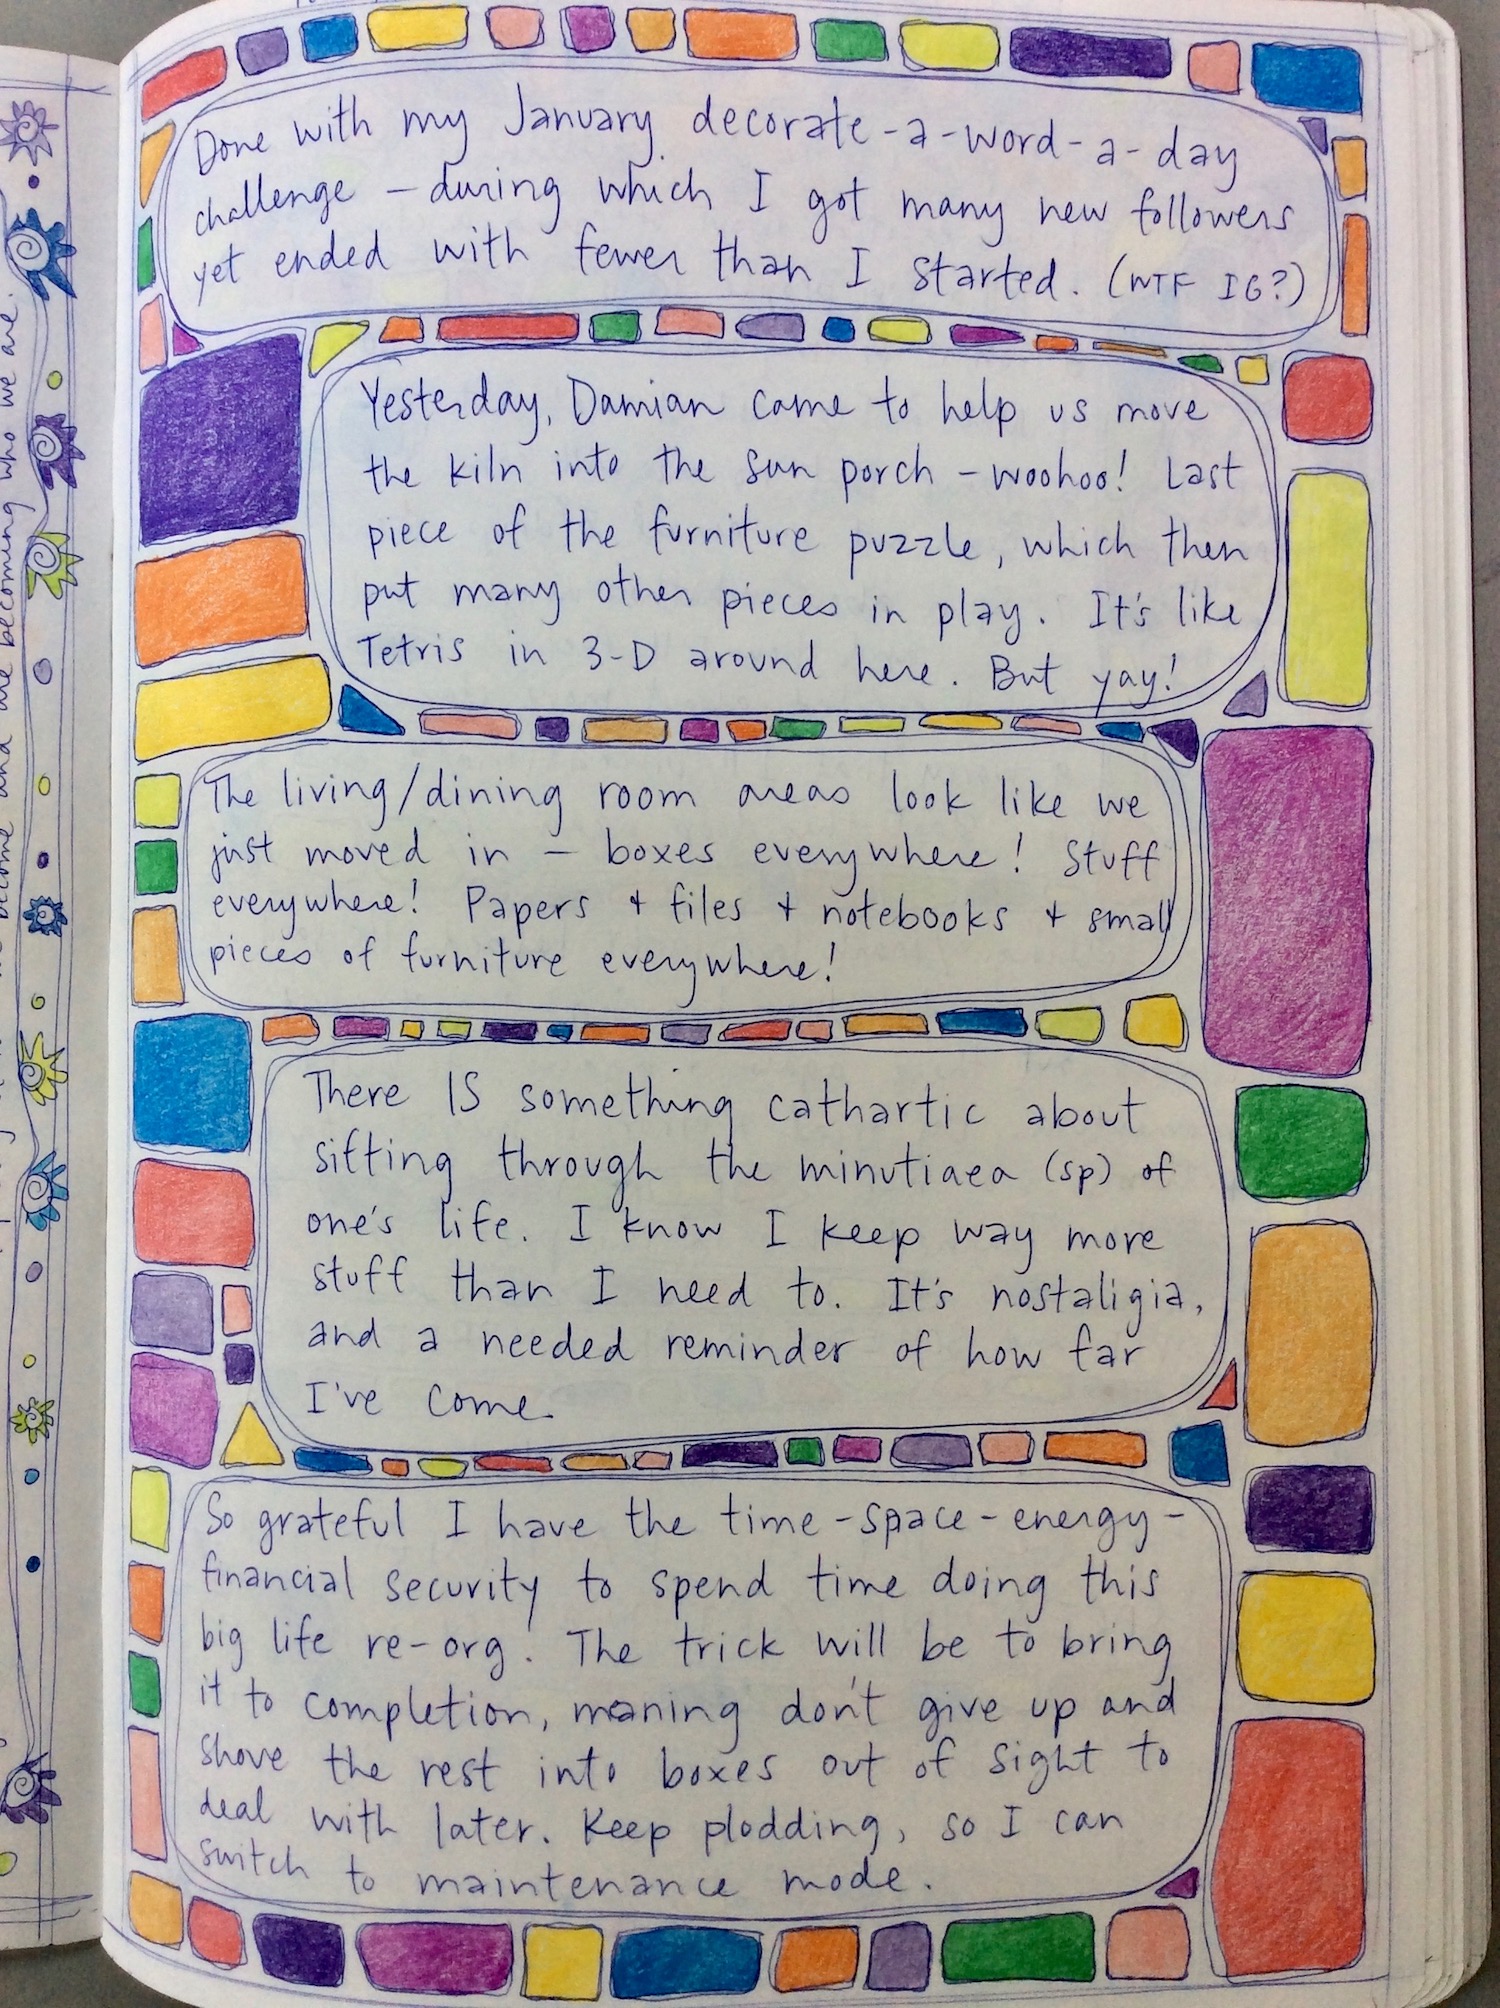 Done with my January decorate-a-word-a-day
challenge – during which I got many new followers
yet ended with fewer than I started. (WTF IG?)
Yesterday, Damian came to help us move
the kiln into the sun porch – woohoo! Last
piece of the furniture puzzle, which then
put many other pieces in play. It's like
Tetris in 3-D around here. But yay!
The living/dining room areas look like we
just moved in – boxes everywhere! Stuff
everywhere! Papers + files + notebooks + small
pieces of furniture everywhere!
There IS something cathartic about
sifting through the minutiaea (sp) of
one's life. I know I keep way more
stuff than I need to. It's nostaligia,
and a needed reminder of how far
I've come.
So grateful I have the time-space-energy-
financial security to spend time doing this
big life re-org! The trick will be to bring
it to completion, meaning don't give up and
shove the rest into boxes out of sight to
deal with later. Keep plodding, so I can
switch to maintenance mode.
become and are becoming who we are.